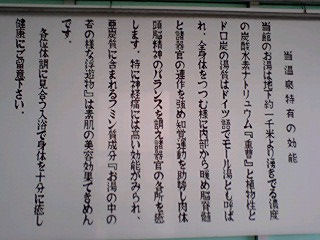 当温泉特有の効能
当館のお湯は地下約一千米より湧きでる濃度
の炭酸水素ナトリュウム『重曹』と植物性と
ドロ炭の湯質はドイツ語でモール湯とも呼ば
れ、全身体をつつむ様に内部から暖め脳脊髄
と諸器官の連作を強め知覚運動を助勢し肉体
頭脳精神のバランスを調え諸器官の各所を癒
します。特に神経痛には高い効能がみられ、
亜炭質に含まれるフミン質成分『お湯の中の
苔の様な浮遊物』は素肌の美容効果てきめん
です。
各位体調に見合う入浴で身体を十分に癒し
健康にご留意下さい。